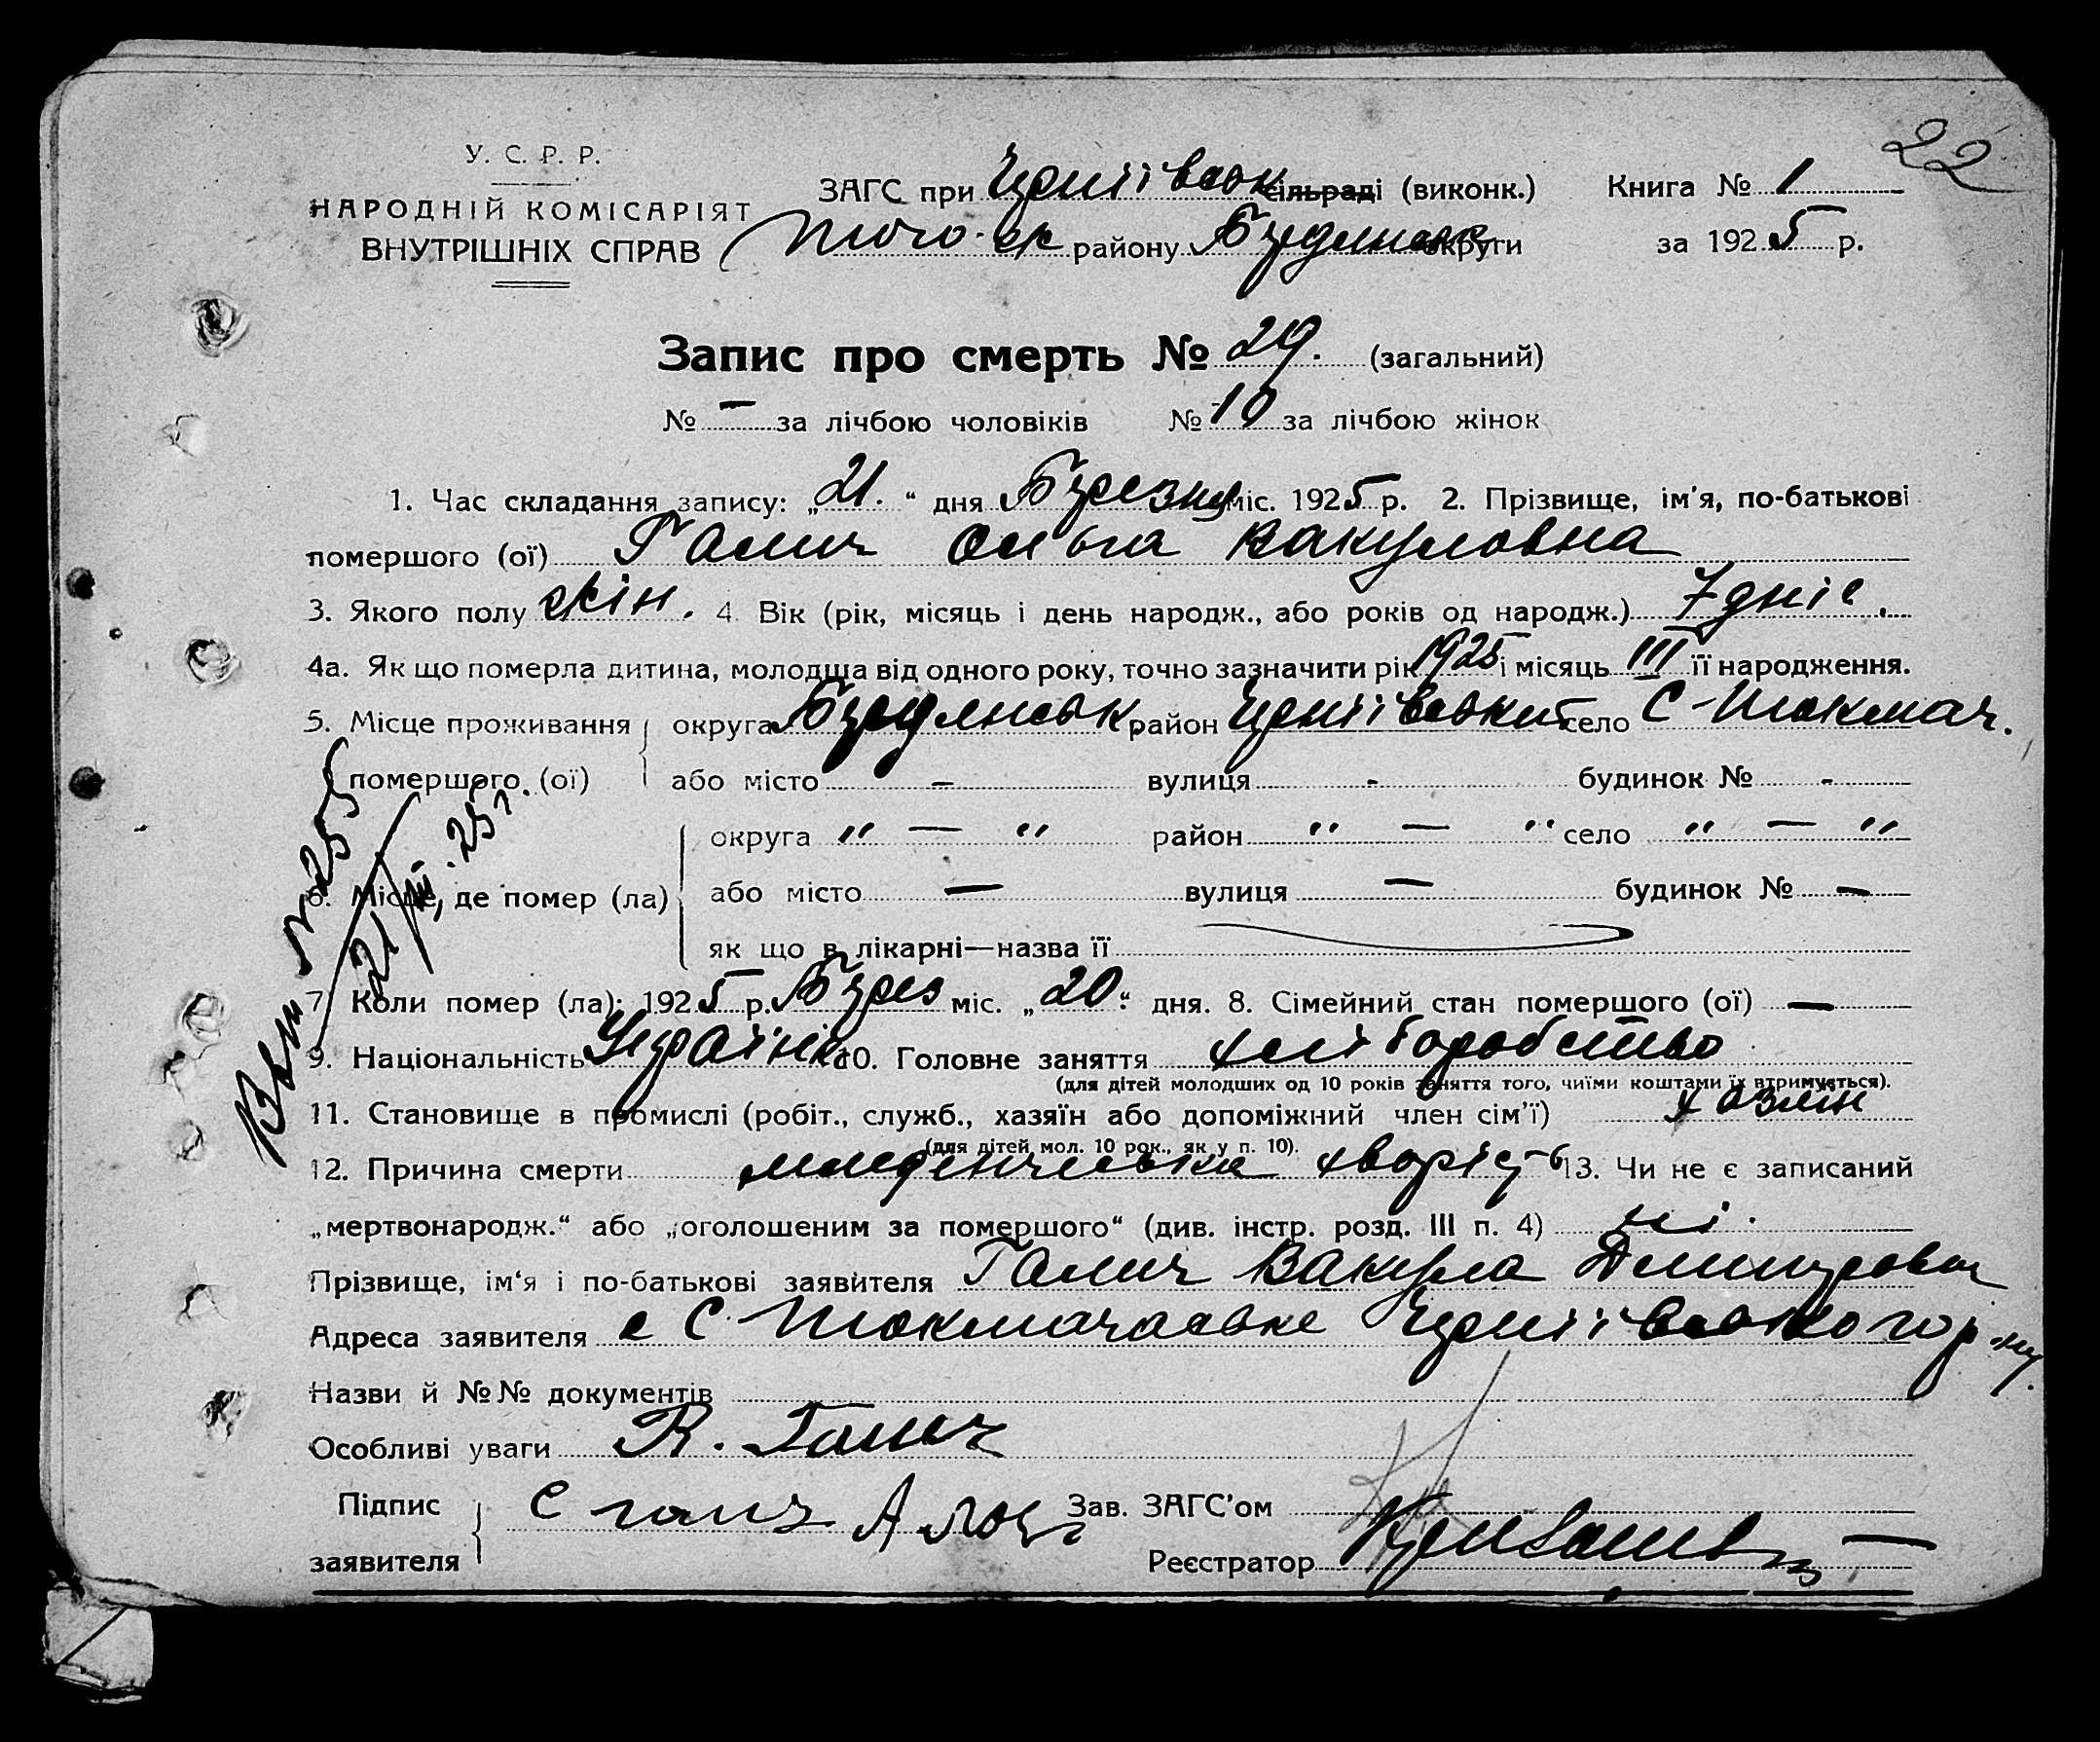 22
У. С. Р. Р.
НАРОДНІЙ КОМІСАРІЯТ
ВНУТРІШНІХ СПРАВ
ЗАГС при Церніївськ сільраді (виконк.) Книга № 1
того-ж району Бердянськ округи за 1925 р.
Запис про смерть № 29. (загальний)
№ — за лічбою чоловіків № 10 за лічбою жінок
1. Час складання запису: „21.“ дня Березня міс. 1925 р. 2. Прізвище, ім'я, по-батькові
помершого (ої) Галич Ольга Вакуловна
3. Якого полу жін. 4. Вік (рік, місяць і день народж., або років од народж.) 7 днів.
4а. Як що померла дитина, молодша від одного року, точно зазначити рік 1925 і місяць III її народження.
5. Місце проживання помершого (ої) округа Бердянськ район Церніївський село С-Токмач.
або місто — вулиця - будинок № -
6. Місце, де помер (ла) округа " — " район " — " село " — "
або місто — вулиця — будинок № —
як що в лікарні—назва її
7. Коли помер (ла): 1925 р. Берез міс. „20“ дня. 8. Сімейний стан помершого (ої) —
9. Національність Україн 10. Головне заняття хліборобство
(для дітей молодших од 10 років заняття того, чиїми коштами їх втримується).
11. Становище в промислі (робіт., служб., хазяїн або допоміжний член сім'ї) хазяїн
(для дітей мол. 10 рок., як у п. 10).
12. Причина смерти младенчеська хворість 13. Чи не є записаний
„мертвонародж.“ або „оголошеним за помершого“ (див. інстр. розд. III п. 4) ні.
Прізвище, ім'я і по-батькові заявителя Галич Вакула Дмитрович
Адреса заявителя с С-Токмачаське Церніївського р-ну.
Назви й №№ документів
Особливі уваги В. Галич
Підпис заявителя
Зав. ЗАГС'ом
Реєстратор
№ 25
21/III.25 р.